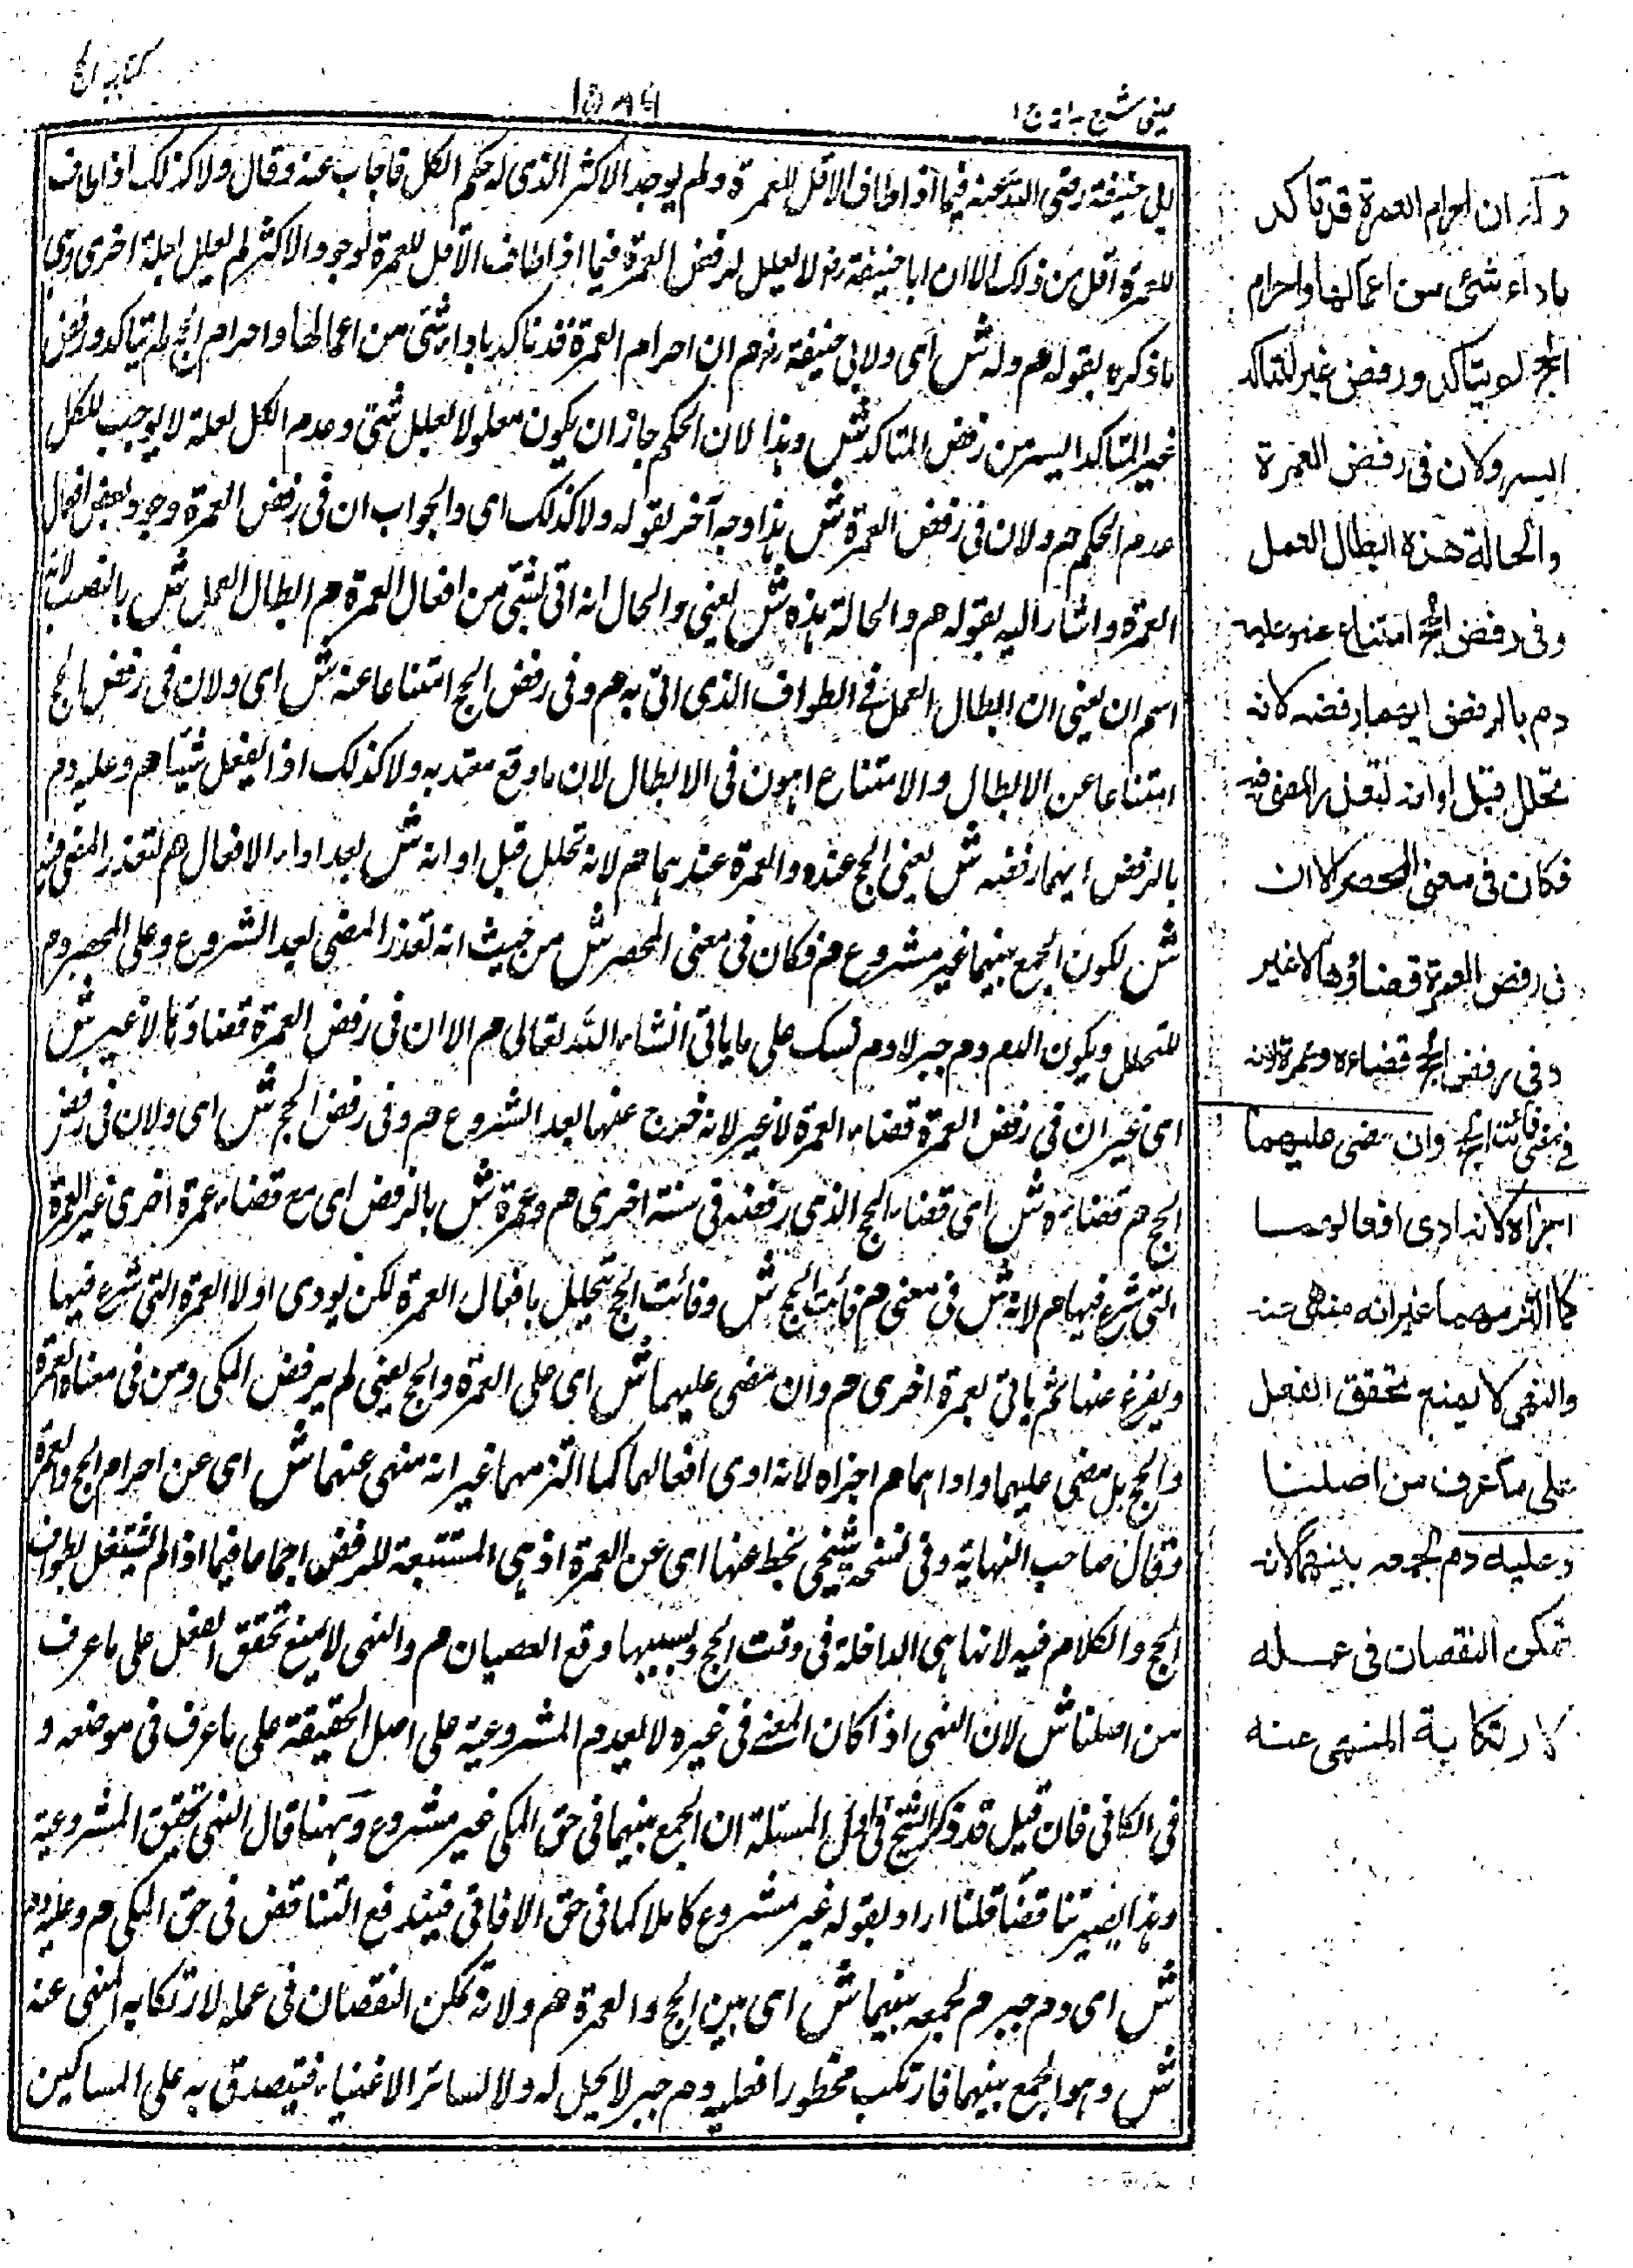 كتاب الحج
١٥٨٩
عيني شرح هداية ج١
لابي حنيفة رضي الله عنه فيما اذا طاف الاقل للعمرة ولم يوجد الاكثر الذي له حكم الكل فاجاب عنه وقال ولا كذلك اذا طاف
للعمرة اقل من ذلك الا ان ابا حنيفة رض لا يعلل لرفض العمرة فيما اذا طاف الاقل للعمرة لوجود الاكثر لم يعلل لعلة اخرى وهي
ما ذكره بقوله هم وله ش اي ولابي حنيفة رض هم ان احرام العمرة قد تاكد باداء شئ من اعمالها واحرام الحج لم يتاكد ورفض
غير المتاكد ايسر من رفض المتاكد ش وهذا لان الحكم جاز ان يكون معلولا بعلل شتى وعدم الكل لعلة لا يوجب للكل
عدم الحكم هم ولان في رفض العمرة ش هذا وجه آخر لقوله ولا كذلك اي والجواب ان في رفض العمرة وجود بعض افعال
العمرة واشار اليه بقوله هم والحالة هذه ش يعني والحال انه اتى بشئ من افعال العمرة هم ابطال العمل ش بالنصب لانه
اسم ان يعني ان ابطال العمل في الطواف الذي اتى به هم وفي رفض الحج امتناعا عنه ش اي ولان في رفض الحج
امتناعا عن الابطال والامتناع اهون في الابطال لان ما وقع معتد به ولا كذلك اذا لم يفعل شيئا هم وعليه دم
بالرفض ايهما رفضه ش يعني الحج عنده والعمرة عندهما هم لانه تحلل قبل اوانه ش بعد اداء الافعال هم لتعذر المضي فيه
ش لكون الجمع بينهما غير مشروع هم فكان في معنى المحصر ش من حيث انه تعذر المضي بعد الشروع وعلى المحصر دم
للتحلل ويكون الدم دم جبر لا دم نسك على ما ياتي انشاء الله تعالى هم الا ان في رفض العمرة قضاؤها لا غير ش
اي غير ان في رفض العمرة قضاء العمرة لا غير لانه خرج عنها بعد الشروع هم وفي رفض الحج ش اي ولان في رفض
الحج هم قضاءه ش اي قضاء الحج الذي رفضه في سنة اخرى هم وعمرة ش بالرفض اي مع قضاء عمرة اخرى غير العمرة
التي شرع فيها هم لانه ش في معنى هم فائت الحج ش وفائت الحج يتحلل بافعال العمرة لكن يودى اولا العمرة التي شرع فيها
ويفرغ عنها ثم ياتي بعمرة اخرى هم وان مضى عليهما ش اي على العمرة والحج يعني لم يرفض المكي ومن في معناه العمرة
والحج بل مضى عليهما واداهما هم اجزاه لانه ادى افعالهما كما التزمهما غير انه منهي عنهما ش اي عن احرام الحج والعمرة
وقال صاحب النهاية وفي نسخة شيخي بخطه عنها اي عن العمرة اذ هي المستتبعة للرفض اجماعا فيما اذا لم يشتغل بطواف
الحج والكلام فيه لانها هي الداخلة في وقت الحج وبسببها وقع العصيان هم والنهي لا يمنع تحقق الفعل على ما عرف
من اصلنا ش لان النهي اذا كان المعنى في غيره لا يعدم المشروعية على اصل الحقيقة على ما عرف في موضعه و
في الكافي فان قيل قد ذكر الشيخ في اول المسئلة ان الجمع بينهما في حق المكي غير مشروع وههنا قال النهي تحقيق المشروعية
وهذا يصير تناقضا قلنا اراد بقوله غير مشروع كاملا كما في حق الافاقي فيندفع التناقض في حق المكي هم وعليه دم
ش اي دم جبر هم لجمعه بينهما ش اي بين الحج والعمرة هم ولانه تمكن النقصان في عمله لارتكابه المنهي عنه
ش وهو الجمع بينهما فارتكب محظورا فعليه دم جبر لا يحل له ولا لسائر الاغنياء فيتصدق به على المساكين
وله ان احرام العمرة قد تاكد
باداء شئ من اعمالها واحرام
الحج لم يتاكد ورفض غير المتاكد
ايسر ولان في رفض العمرة
والحالة هذه ابطال العمل
وفي رفض الحج امتناع عنه وعليه
دم بالرفض ايهما رفضه لانه
تحلل قبل اوانه لتعذر المضي فيه
فكان في معنى المحصر الا ان
في رفض العمرة قضاؤها لا غير
وفي رفض الحج قضاءه وعمرة لانه
في معنى فائت الحج وان مضى عليهما
اجزاه لانه ادى افعالهما
كما التزمهما غير انه منهي عنه
والنهي لا يمنع تحقق الفعل
على ما عرف من اصلنا
وعليه دم لجمعه بينهما لانه
تمكن النقصان في عمله
لارتكابه المنهي عنه